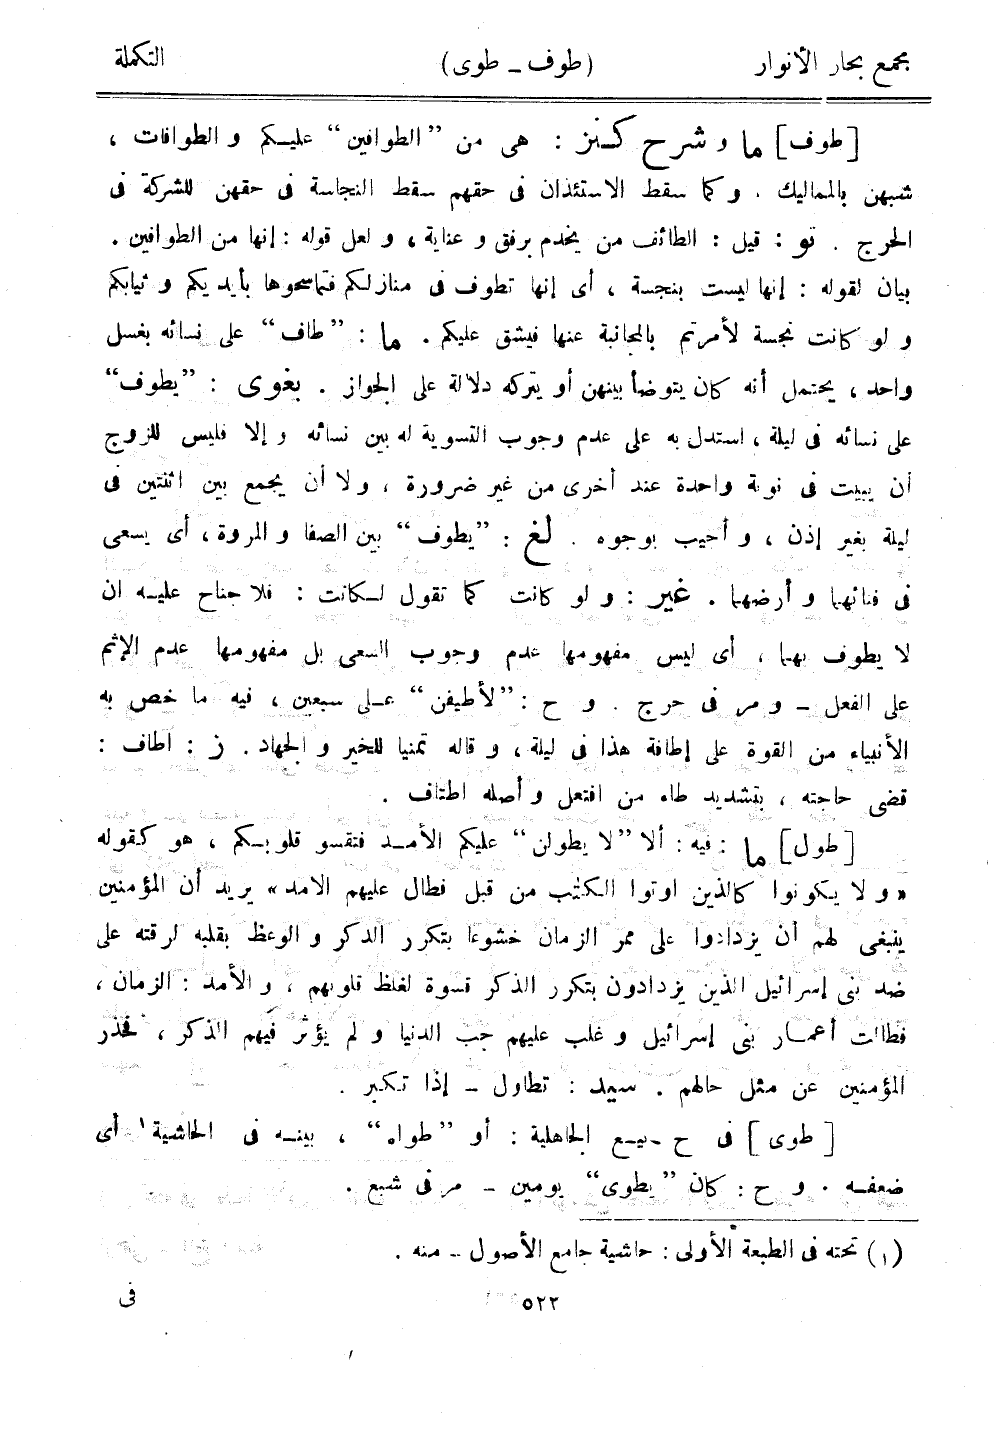 مجمع بحار الأنوار (طوف ـ طوى) التكملة
[طوف] ما و شرح كنز : هى من ”الطوافين“ عليكم و الطوافات ،
شبهن بالمماليك . و كما سقط الاستئذان فى حقهم سقط النجاسة فى حقهن للشركة فى
الحرج . تو : قيل : الطائف من يخدم برفق و عناية ، و لعل قوله : إنها من الطوافين .
بيان لقوله : إنها ليست بنجسة ، أى إنها تطوف فى منازلكم فتماسحوها بأيديكم و ثيابكم
و لو كانت نجسة لأمرتم بالمجانبة عنها فيشق عليكم . ما : ”طاف“ على نسائه بغسل
واحد ، يحتمل أنه كان يتوضأ بينهن أو يتركه دلالة على الجواز . بغوى : ”يطوف“
على نسائه فى ليلة ، استدل به على عدم وجوب التسوية له بين نسائه و إلا فليس للزوج
أن يبيت فى نوبة واحدة عند أخرى من غير ضرورة ، و لا أن يجمع بين اثنتين فى
ليلة بغير إذن ، و أجيب بوجوه . لغ : ”يطوف“ بين الصفا و المروة ، أى يسعى
فى فنائهما و أرضهما . غير : و لو كانت كما تقول لكانت : فلا جناح عليه ان
لا يطوف بهما ، أى ليس مفهومها عدم وجوب السعى بل مفهومها عدم الإثم
على الفعل ـ و مر فى حرج . و ح : ”لأطيفن“ على سبعين ، فيه ما خص به
الأنبياء من القوة على إطافة هذا فى ليلة ، و قاله تمنيا للخير و الجهاد . ز : اطاف :
قضى حاجته ، بتشديد طاء من افتعل و أصله اطتاف .
[طول] ما : فيه : ألا ”لا يطولن“ عليكم الأمد فتقسو قلوبكم ، هو كقوله
« و لا يكونوا كالذين اوتوا الكتٰب من قبل فطال عليهم الامد » يريد أن المؤمنين
ينبغى لهم أن يزدادوا على ممر الزمان خشوعا بتكرر الذكر و الوعظ بقلبه لرقته على
ضد بنى إسرائيل الذين يزدادون بتكرر الذكر قسوة لغلظ قلوبهم ، و الأمد : الزمان ،
فطالت أعمار بنى إسرائيل و غلب عليهم حب الدنيا و لم يؤثر فيهم الذكر ، فحذر
المؤمنين عن مثل حالهم . سيد : تطاول ـ إذا تكبر .
[طوى] فى ح بيع الجاهلية : أو ”طواه“ ، بينه فى الحاشية ١ أى
ضعفه . و ح : كان ”يطوى“ يومين ـ مر فى شبع .
(١) تحته فى الطبعة الأولى : حاشية جامع الأصول ـ منه .
٥٢٢ فى